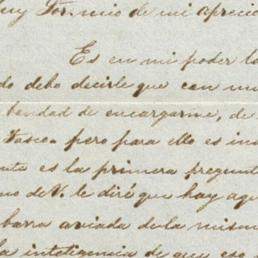 uy Sor. mio de mi apreci
Es en mi poder la
do debo decirle que con mu
bondad de encargarme, de
Tasco. pero para ello es in
nte es la primera pregunt
mo de V. le diré que hay aqu
barra aviada de la mism
la inteligencia de que eso